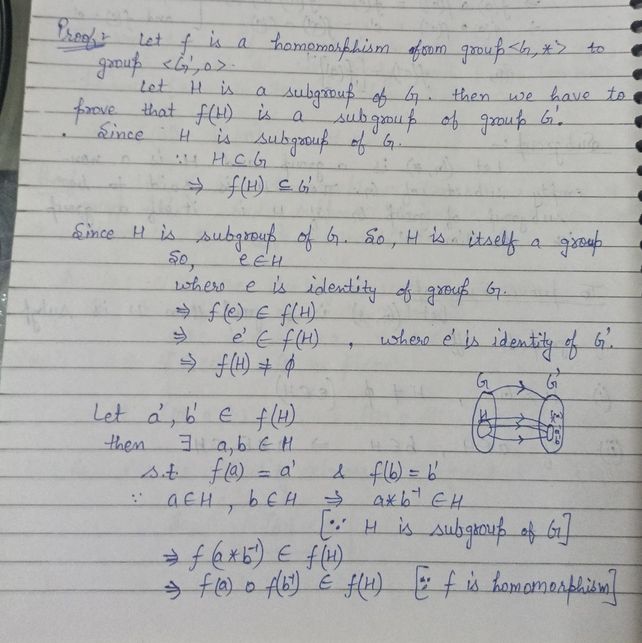 Proof:- Let f is a homomorphism from group <G, *> to
group <G', o>.
Let H is a subgroup of G. then we have to
prove that f(H) is a subgroup of group G'.
Since H is subgroup of G.
∵ H ⊆ G
⇒ f(H) ⊆ G'
Since H is subgroup of G. So, H is itself a group
So, e ∈ H
where e is identity of group G.
⇒ f(e) ∈ f(H)
⇒ e' ∈ f(H) , where e' is identity of G'.
⇒ f(H) ≠ ϕ
G G'
H
Let a', b' ∈ f(H)
then ∃ a, b ∈ H
s.t. f(a) = a' & f(b) = b'
∵ a ∈ H , b ∈ H ⇒ a*b⁻¹ ∈ H
[∵ H is subgroup of G]
⇒ f(a*b⁻¹) ∈ f(H)
⇒ f(a) o f(b⁻¹) ∈ f(H) [∵ f is homomorphism]